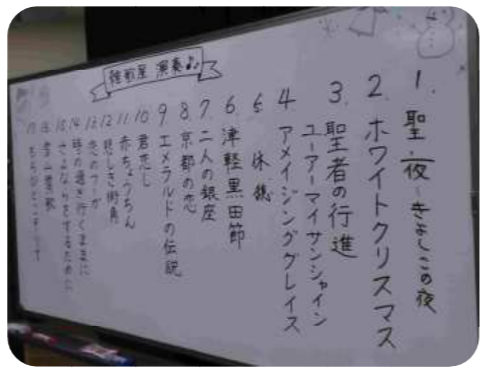 演奏
1. 聖夜-きよしこの夜
2. ホワイトクリスマス
3. 聖者の行進
ユーアーマイサンシャイン
4 アメイジンググレイス
5. 休憩
6. 津軽黒田節
7. 二人の銀座
8. 京都の恋
9. エメラルドの伝説
10 君恋し
11. 赤ちょうちん
12 悲しき街角
13. 恋のフーガ
14 時の過ぎ行くままに
15 さよならをするために
16
17